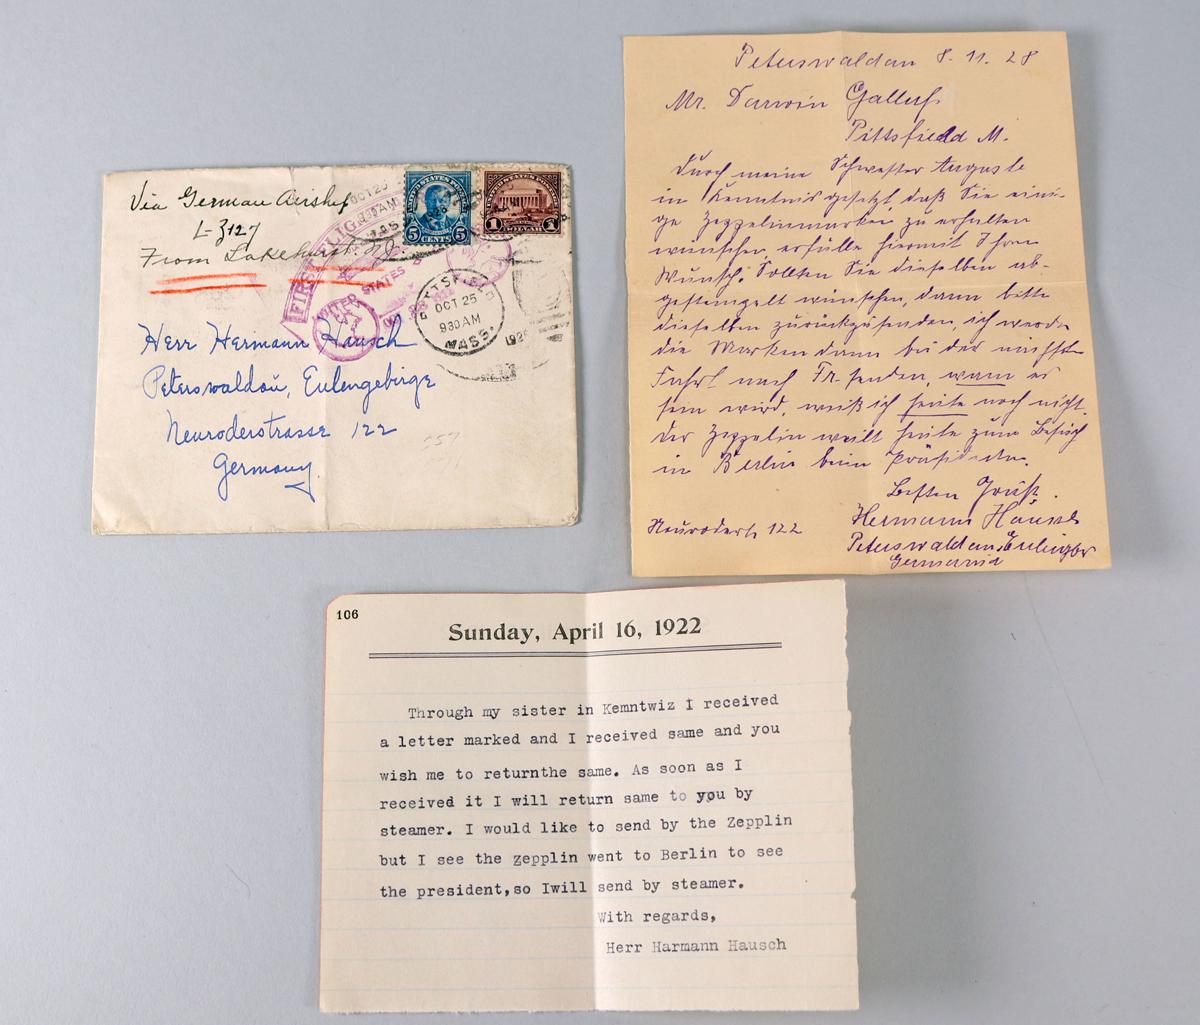 Via German Airship
L-Z127
From Lakehurst. N.J.
OCT 25
930 AM
MASS.
1928
UNITED STATES POSTAGE
5 CENTS 5
UNITED STATES POSTAGE
1 DOLLAR 1
FIRST FLIGHT
UNITED STATES
PITTSFIELD
OCT 25
930 AM
MASS.
1928
Herr Hermann Hausch
Peterswaldau, Eulengebirge
Neuroderstrasse 122
Germany
Peterswaldau 8. 11. 28
Mr. Darwin Gallup
Pittsfield M.
Durch meine Schwester Auguste
in Kenntnis gesetzt daß Sie eini-
ge Zeppelinmarken zu erhalten
wünschen, erfülle hiermit Ihren
Wunsch. Sollten Sie dieselben ab-
gestempelt wünschen, dann bitte
dieselben zurückzusenden, ich werde
die Marken dann bei der nächsten
Fahrt nach Fr. senden, wann es
sein wird, weiß ich heute noch nicht.
Der Zeppelin weilt heute zum Besuch
in Berlin beim Präsidenten.
Besten Gruß.
Hermann Hausch
Neuroderstr. 122
Peterswaldau, Eulengebr
Germania
106
Sunday, April 16, 1922
Through my sister in Kemntwiz I received
a letter marked and I received same and you
wish me to returnthe same. As soon as I
received it I will return same to you by
steamer. I would like to send by the Zepplin
but I see the zepplin went to Berlin to see
the president,so Iwill send by steamer.
With regards,
Herr Harmann Hausch